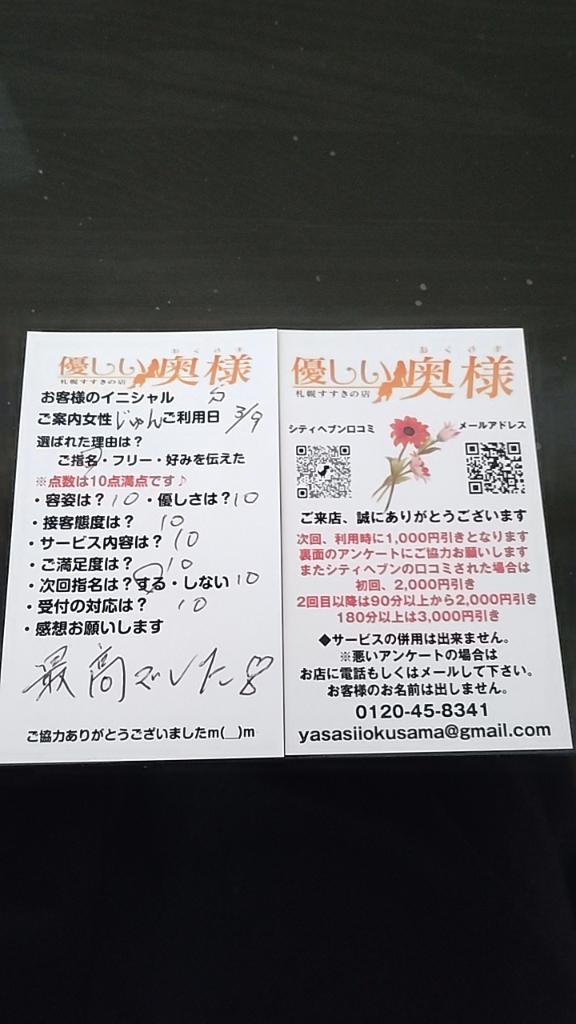 優しい奥様
札幌すすきの店
お客様のイニシャル
ご案内女性 じゅん ご利用日 3/9
選ばれた理由は？
ご指名・フリー・好みを伝えた
※点数は10点満点です♪
・容姿は？10・優しさは？10
・接客態度は？ 10
・サービス内容は？ 10
・ご満足度は？ 10
・次回指名は？する・しない 10
・受付の対応は？ 10
・感想お願いします
最高でした
ご協力ありがとうございましたm(__)m
おくさま
優しい奥様
札幌すすきの店
シティヘブン口コミ
メールアドレス
ご来店、誠にありがとうございます
次回、利用時に1,000円引きとなります
裏面のアンケートにご協力お願いします
またシティヘブンの口コミされた場合は
初回、2,000円引き
2回目以降は90分以上から2,000円引き
180分以上は3,000円引き
◆サービスの併用は出来ません。
※悪いアンケートの場合は
お店に電話もしくはメールして下さい。
お客様のお名前は出しません。
0120-45-8341
yasasiiokusama@gmail.com